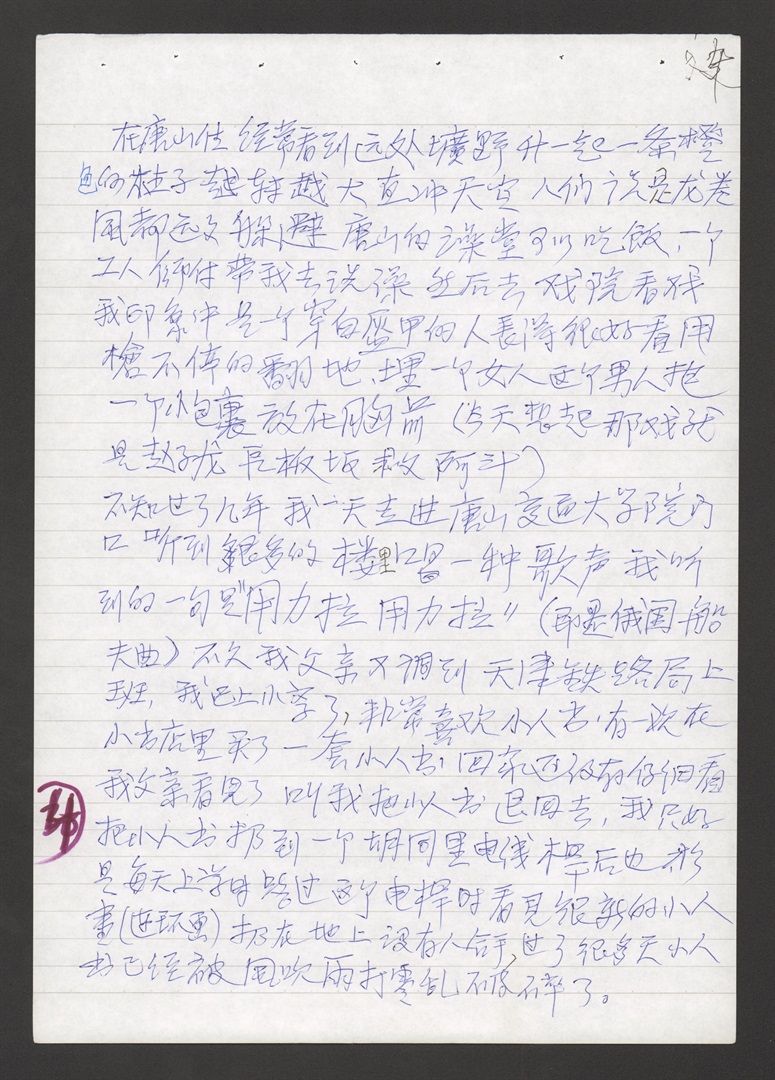 在唐山住 经常看到远处圹野升起一条橙
色的柱子越转越大直冲天空 人们说是龙卷
风都远文躲避 唐山的澡堂可以吃飯,一个
工人师付带我去洗澡 然后去戏院看戏
我印象中是一个穿白盔甲的人長得很好看用
槍不停的翻地、埋一个女人这个男人抱
一个小包裹放在胸前(今天想起那戏就
是赵子龙 長板坂救阿斗)
不知过了几年 我一天走进唐山交通大学院内
口听到很多的楼里口唱一种歌声 我听
到的一句是"用力拉 用力拉"(即是俄国船
夫曲)不久我父亲又调到天津铁路局上
班,我已上小学了,非常喜欢小人书.有一次在
小书店里买了一套小人书,回家还没有仔细看
我父亲看见了 叫我把小人书退回去,我只好
把小人书扔到一个胡同里电线杆后也
是每天上学时路过这个电杆时看见很新的小人
書(连环画)扔在地上没有人拿,过了很多天小人
书已经被風吹雨打零乱破碎了。